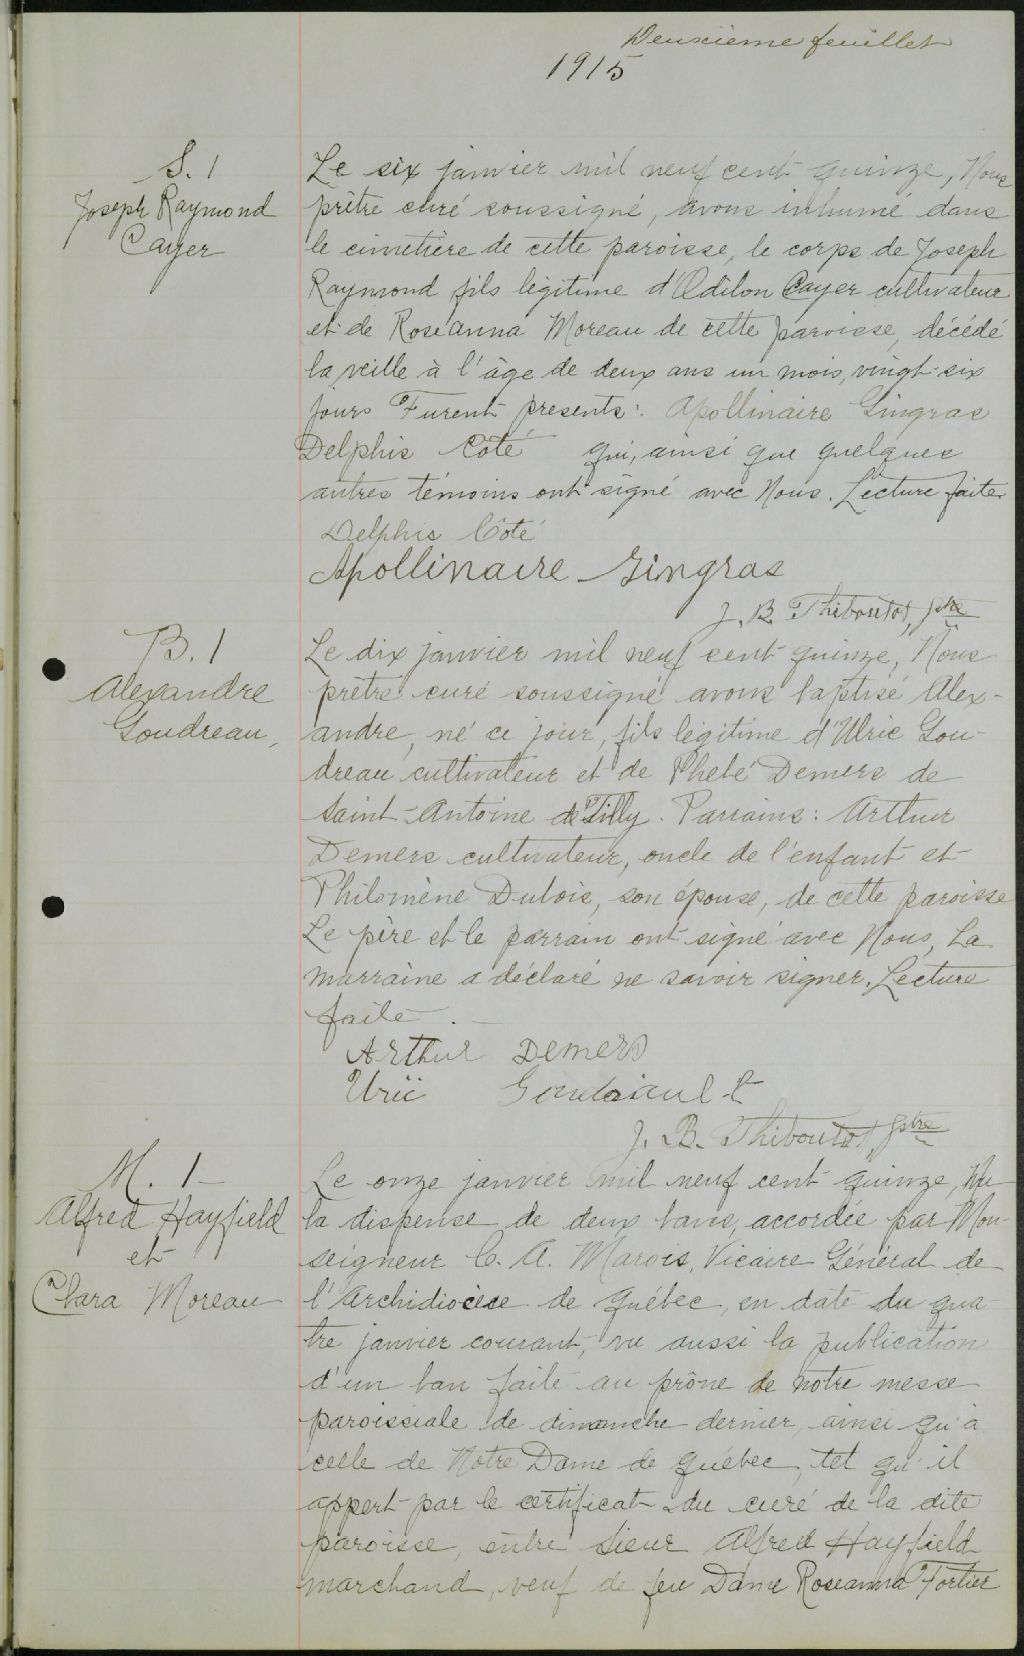 Deuxième feuillet
1915
S. 1
Joseph Raymond
Cayer
Le six janvier mil neuf cent quinze, Nous
prêtre curé soussigné, avons inhumé dans
le cimetière de cette paroisse, le corps de Joseph
Raymond fils légitime d'Odilon Cayer cultivateur
et de Roséanna Moreau de cette paroisse, décédé
la veille à l'âge de deux ans un mois, vingt-six
jours Furent présents: Apollinaire Gingras
Delphis Côté qui, ainsi que quelques
autres témoins ont signé avec Nous. Lecture faite.
Delphis Côté
Apollinaire Gingras
J. B. Thiboutot, ptre
B. 1
Alexandre
Goudreau,
Le dix janvier mil neuf cent quinze, Nous
prêtre curé soussigné avons baptisé Alex-
andre, né ce jour, fils légitime d'Ulric Gou-
dreau cultivateur et de Phebé Demers de
Saint-Antoine de Tilly. Parrains: Arthur
Demers cultivateur, oncle de l'enfant et
Philomène Dubois, son épouse, de cette paroisse
Le père et le parrain ont signé avec Nous, La
marraine a déclaré ne savoir signer. Lecture
faite.
Arthur Demers
J. B. Thiboutot, ptre
M. 1
Alfred Hayfield
et
Clara Moreau
Le onze janvier mil neuf cent quinze, Vu
la dispense de deux bans, accordée par Mon-
seigneur C. A. Marois, Vicaire Général de
l'Archidiocèse de Québec, en date du qua
tre janvier courant, vu aussi la publication
d'un ban faite au prône de notre messe
paroissiale de dimanche dernier, ainsi qu'à
celle de Notre Dame de Québec, tel qu'il
appert par le certificat du curé de la dite
paroisse, entre Sieur Alfred Hayfield
marchand, veuf de feu Dame Roseanna Fortier